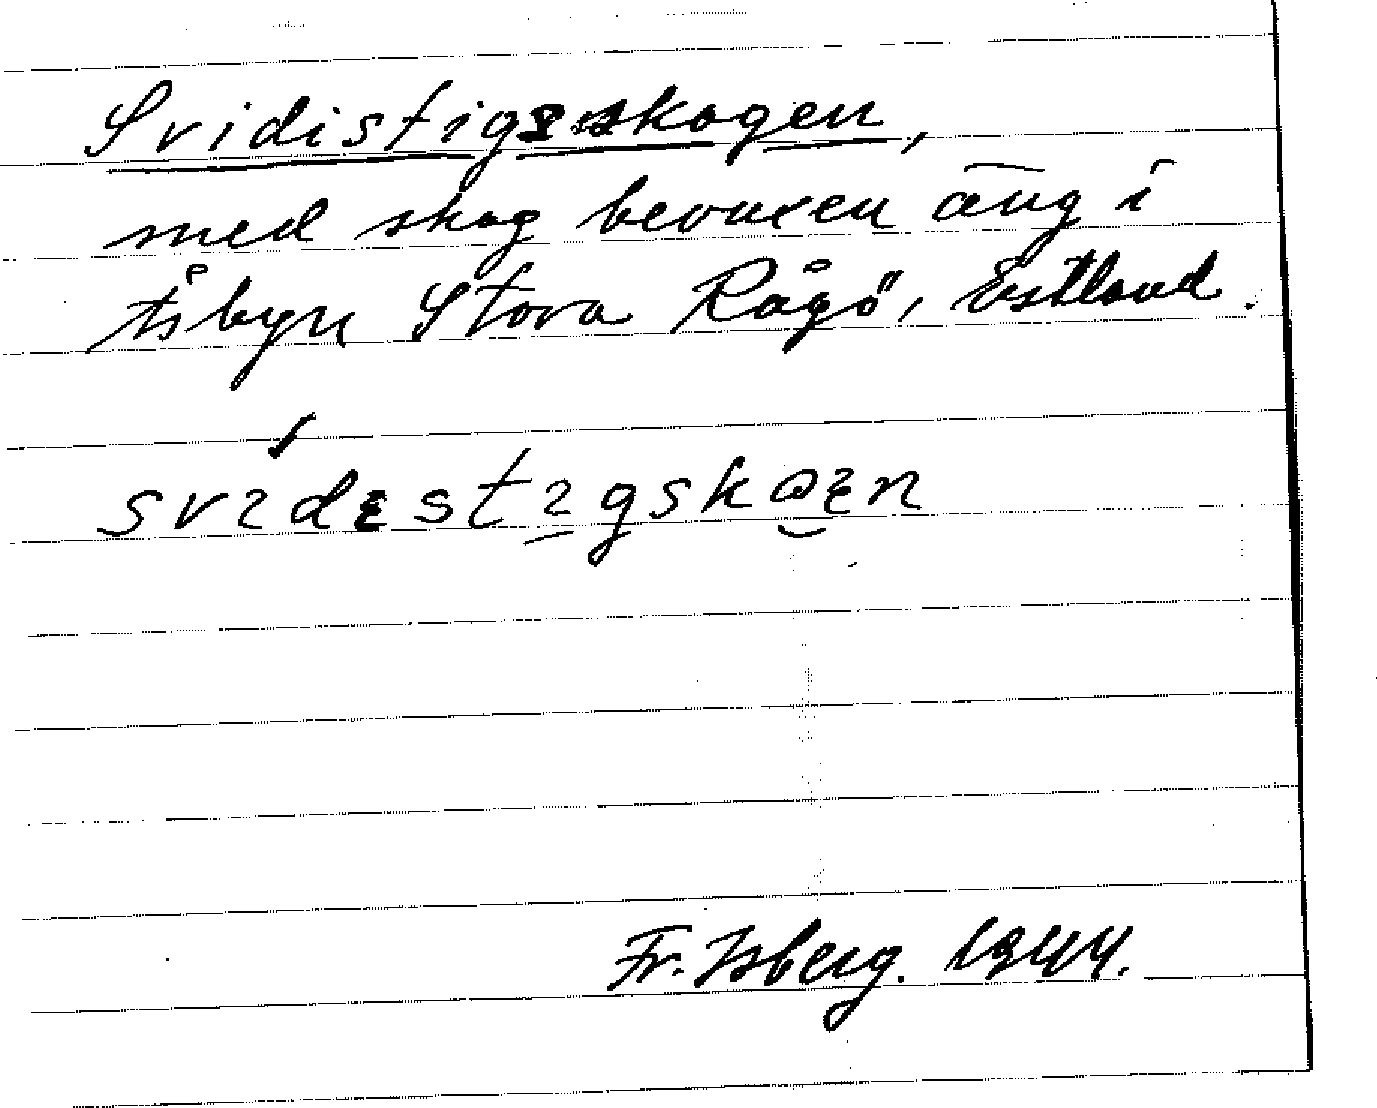 Svidistigsskogen,
med skog bevuxen äng i
åbyn Stora Rågö, Estland.
Fr. Isberg. 1944.